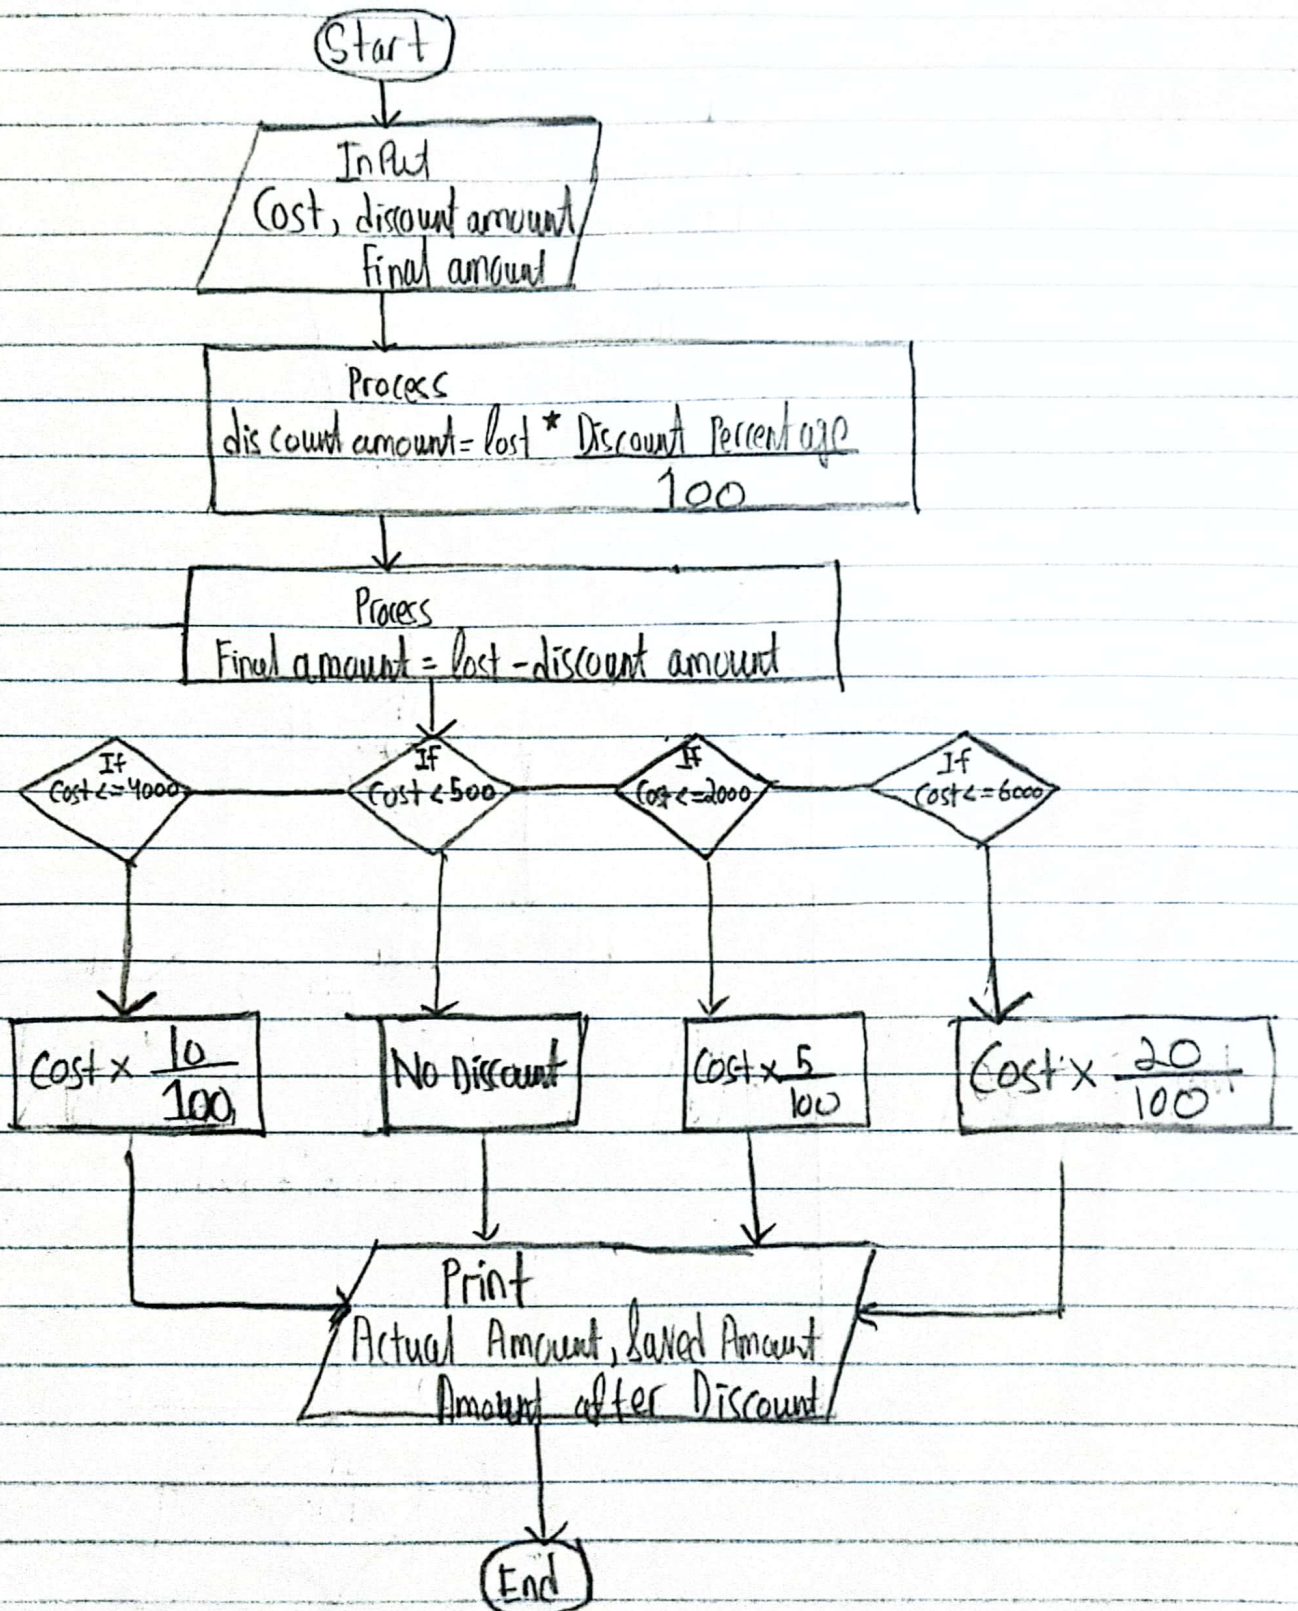 Start
Input
Cost, discount amount
Final amount
Process
discount amount = Cost * Discount Percentage
100
Process
Final amount = Cost - discount amount
If
Cost <= 4000
If
Cost < 500
If
Cost <= 2000
If
Cost <= 6000
Cost × 10
100
No Discount
Cost × 5
100
Cost × 20
100
Print
Actual Amount, Saved Amount
Amount after Discount
End